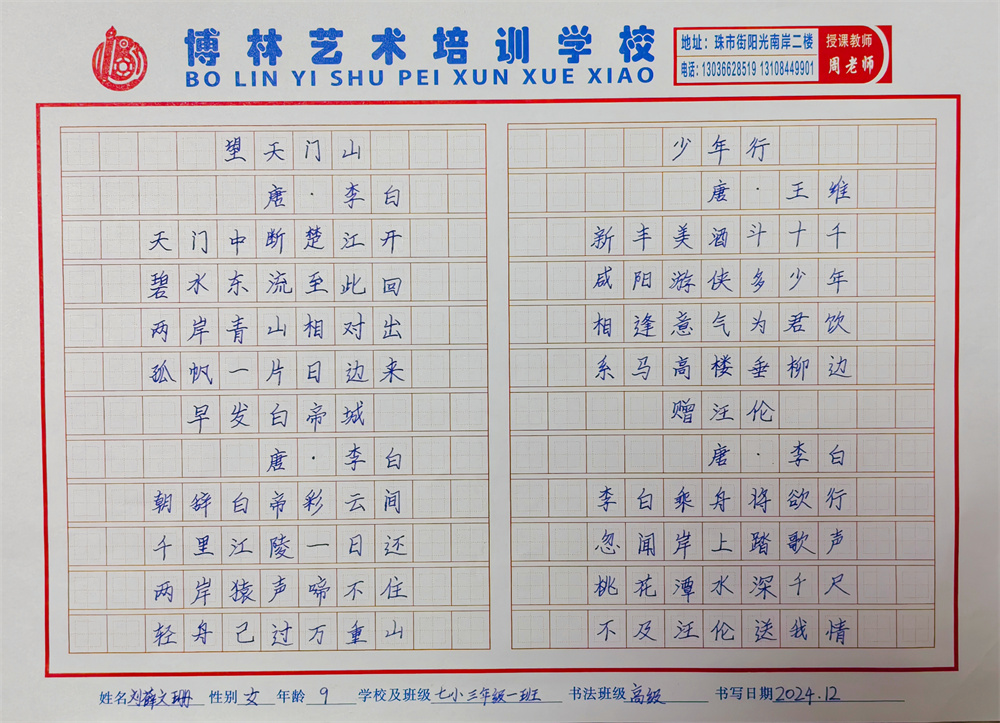 博林艺术培训学校
BO LIN YI SHU PEI XUN XUE XIAO
地址：珠市街阳光南岸二楼
电话：13036628519 13108449901
授课教师
周老师
望天门山
唐·李白
天门中断楚江开
碧水东流至此回
两岸青山相对出
孤帆一片日边来
早发白帝城
唐·李白
朝辞白帝彩云间
千里江陵一日还
两岸猿声啼不住
轻舟已过万重山
少年行
唐·王维
新丰美酒斗十千
咸阳游侠多少年
相逢意气为君饮
系马高楼垂柳边
赠汪伦
唐·李白
李白乘舟将欲行
忽闻岸上踏歌声
桃花潭水深千尺
不及汪伦送我情
姓名刘薛文珊 性别女 年龄9 学校及班级七小三年级一班 书法班级高级 书写日期2024.12